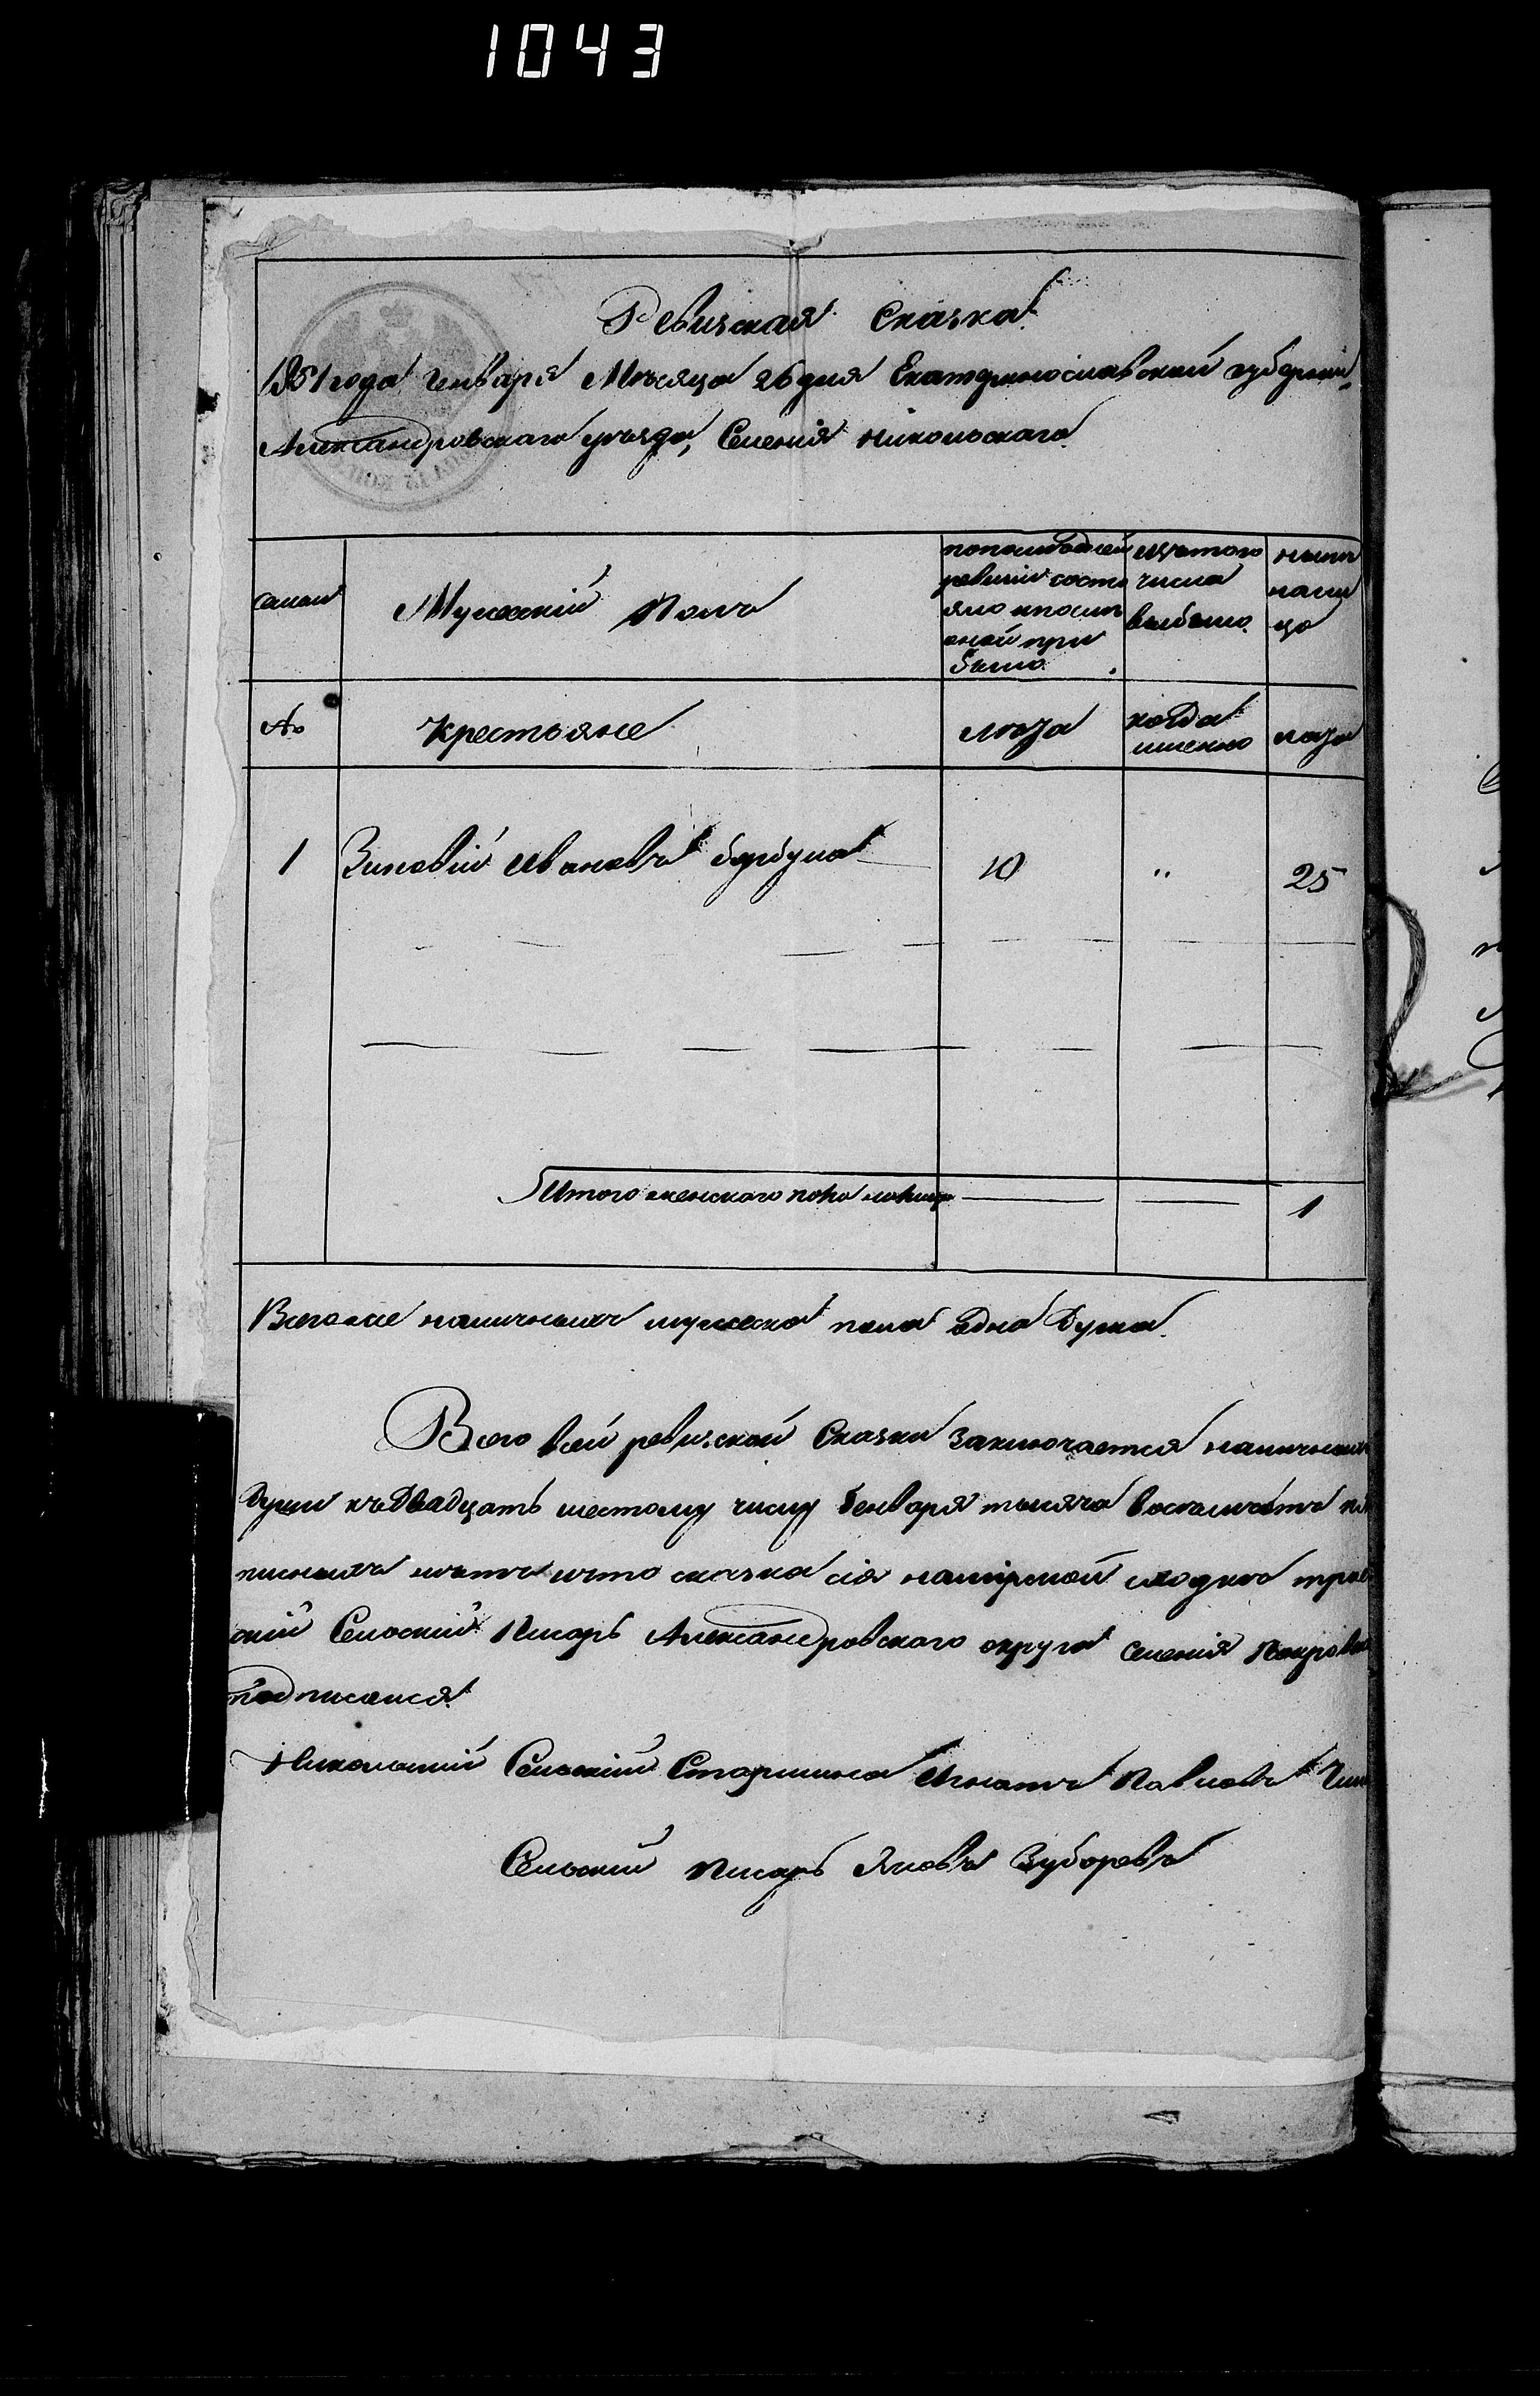 1043
Ревизская Сказка
1851 года Генваря Месяца 26 дня Екатеринославской губернии
Александровскаго уезда, Селенiя Никольскаго
Мужескiй Полъ
по последней ревизiи состояло и после оной прибыло
изъ того числа выбыло
ныне на лицо
№
Крестьяне
лета
когда именно
лета
1
Зиновiй Ивановъ
10
"
25
Итого мужскаго пола на лицо
1
Всего же наличныхъ мужеска пола одна душа.
Всего въ сей ревизской Сказки заключается наличныхъ
души къ двадцать шестому числу Генваря тысяча восемсотъ
что сказка сiя
скiй Сельскiй Писарь Александровскаго округа селенiя
подписался
Никольскiй Сельскiй Старшина Игнатъ Павловъ
Сельскiй Писарь Яковъ Зубаревъ